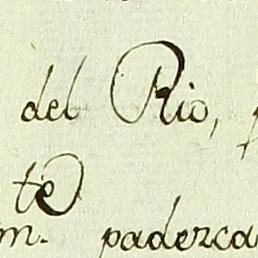 del Rio,
te
m. paderca